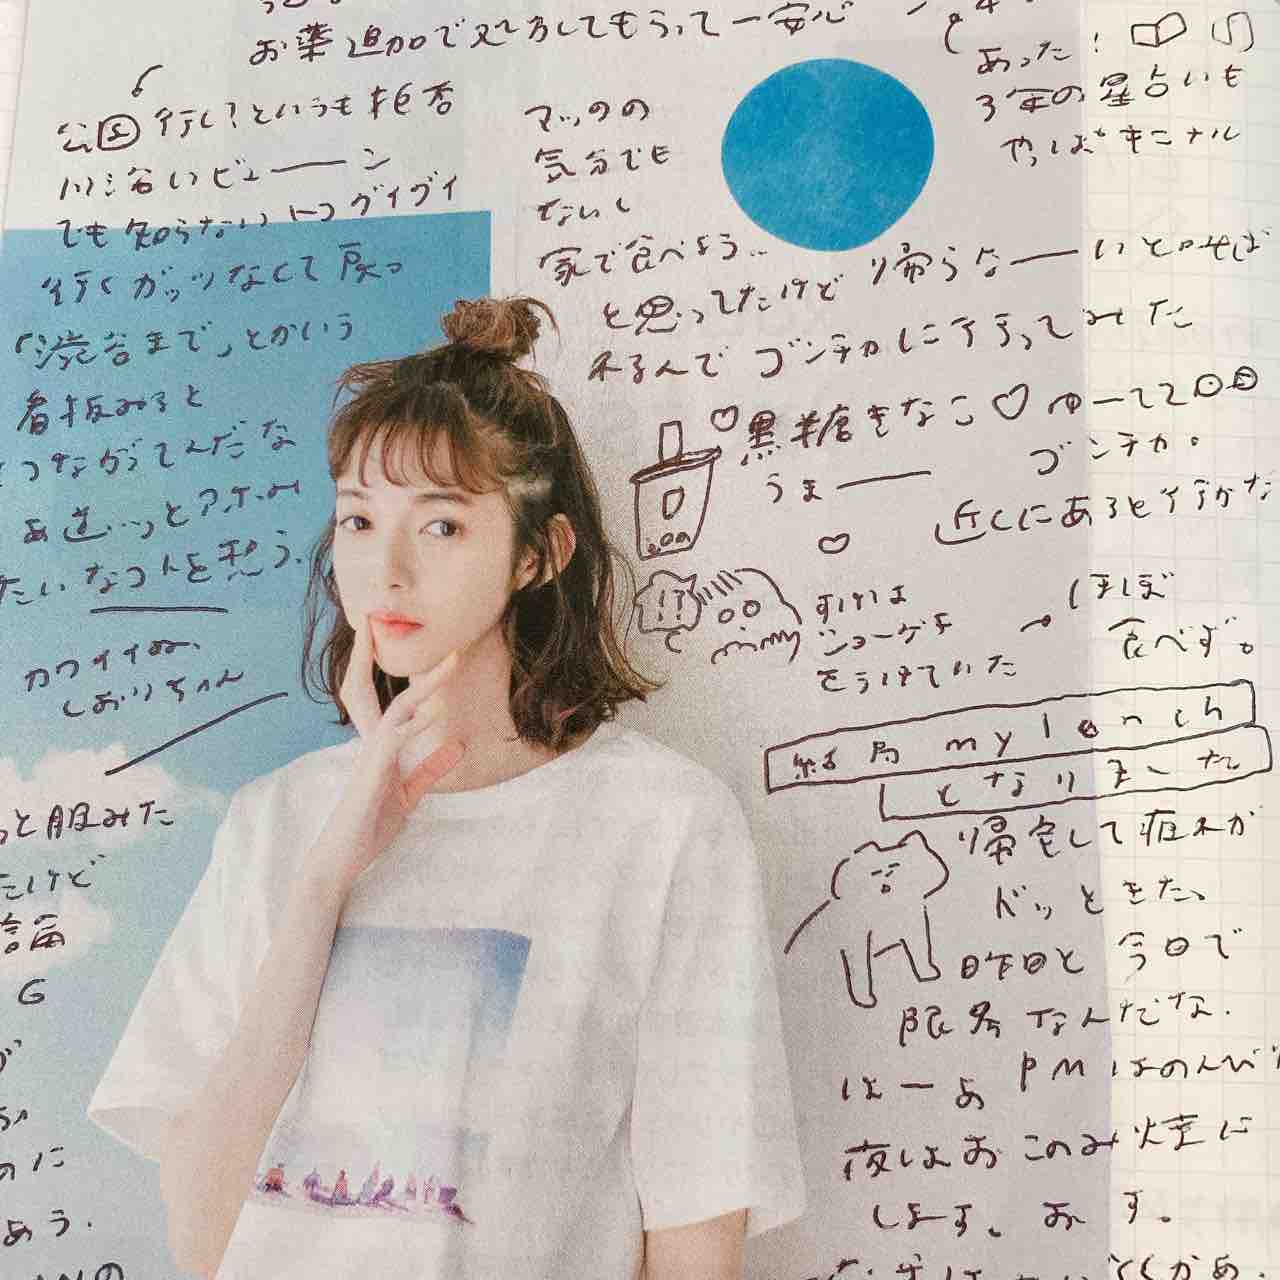 お薬追加で処方してもらって一安心
公園行く?というも拒否
渋谷いビューーン
でも知らないトコグイグイ
行くガッツなくて戻る
「渋谷まで」とかいう
看板みると
つながってんだな
たいなコトを想う。
カワイイね、
しおりちゃん
と服みた
たけど
論
G
のに
あう.
マックの
気分でも
ないし
家で食べよう..
と思ってたけど 帰らなーーいとゆえば
ゴンチャに行ってみた
黒糖きなこ♡ゆーて2回目
うまーー
ゴンチャ。
近くにあると行かな
すけは
ショーゲキ
をうけていた
→ほぼ
食べず。
結局 my lunch
となりました
帰宅して疲れが
ドッときた。
昨日と今日で
限界なんだな.
はーあ PMはのんび
夜はお このみ焼に
します。 おす。
あった!
3年の星占いも
やっぱキニナル